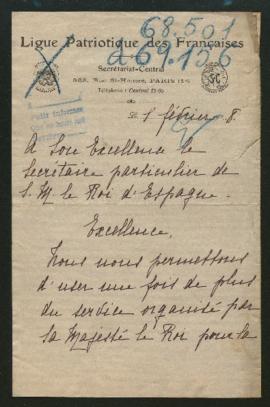 68.501
à 69.156
Ligue Patriotique des Françaises
Secrétariat-Central
Rue St-Honoré, PARIS
Téléphone : Central
1 février 8.
A Son Excellence le
Secrétaire particulier de
S. M. le Roi d'Espagne.
Excellence,
Nous nous permettons
d'user une fois de plus
du service organisé par
sa Majesté le Roi pour la